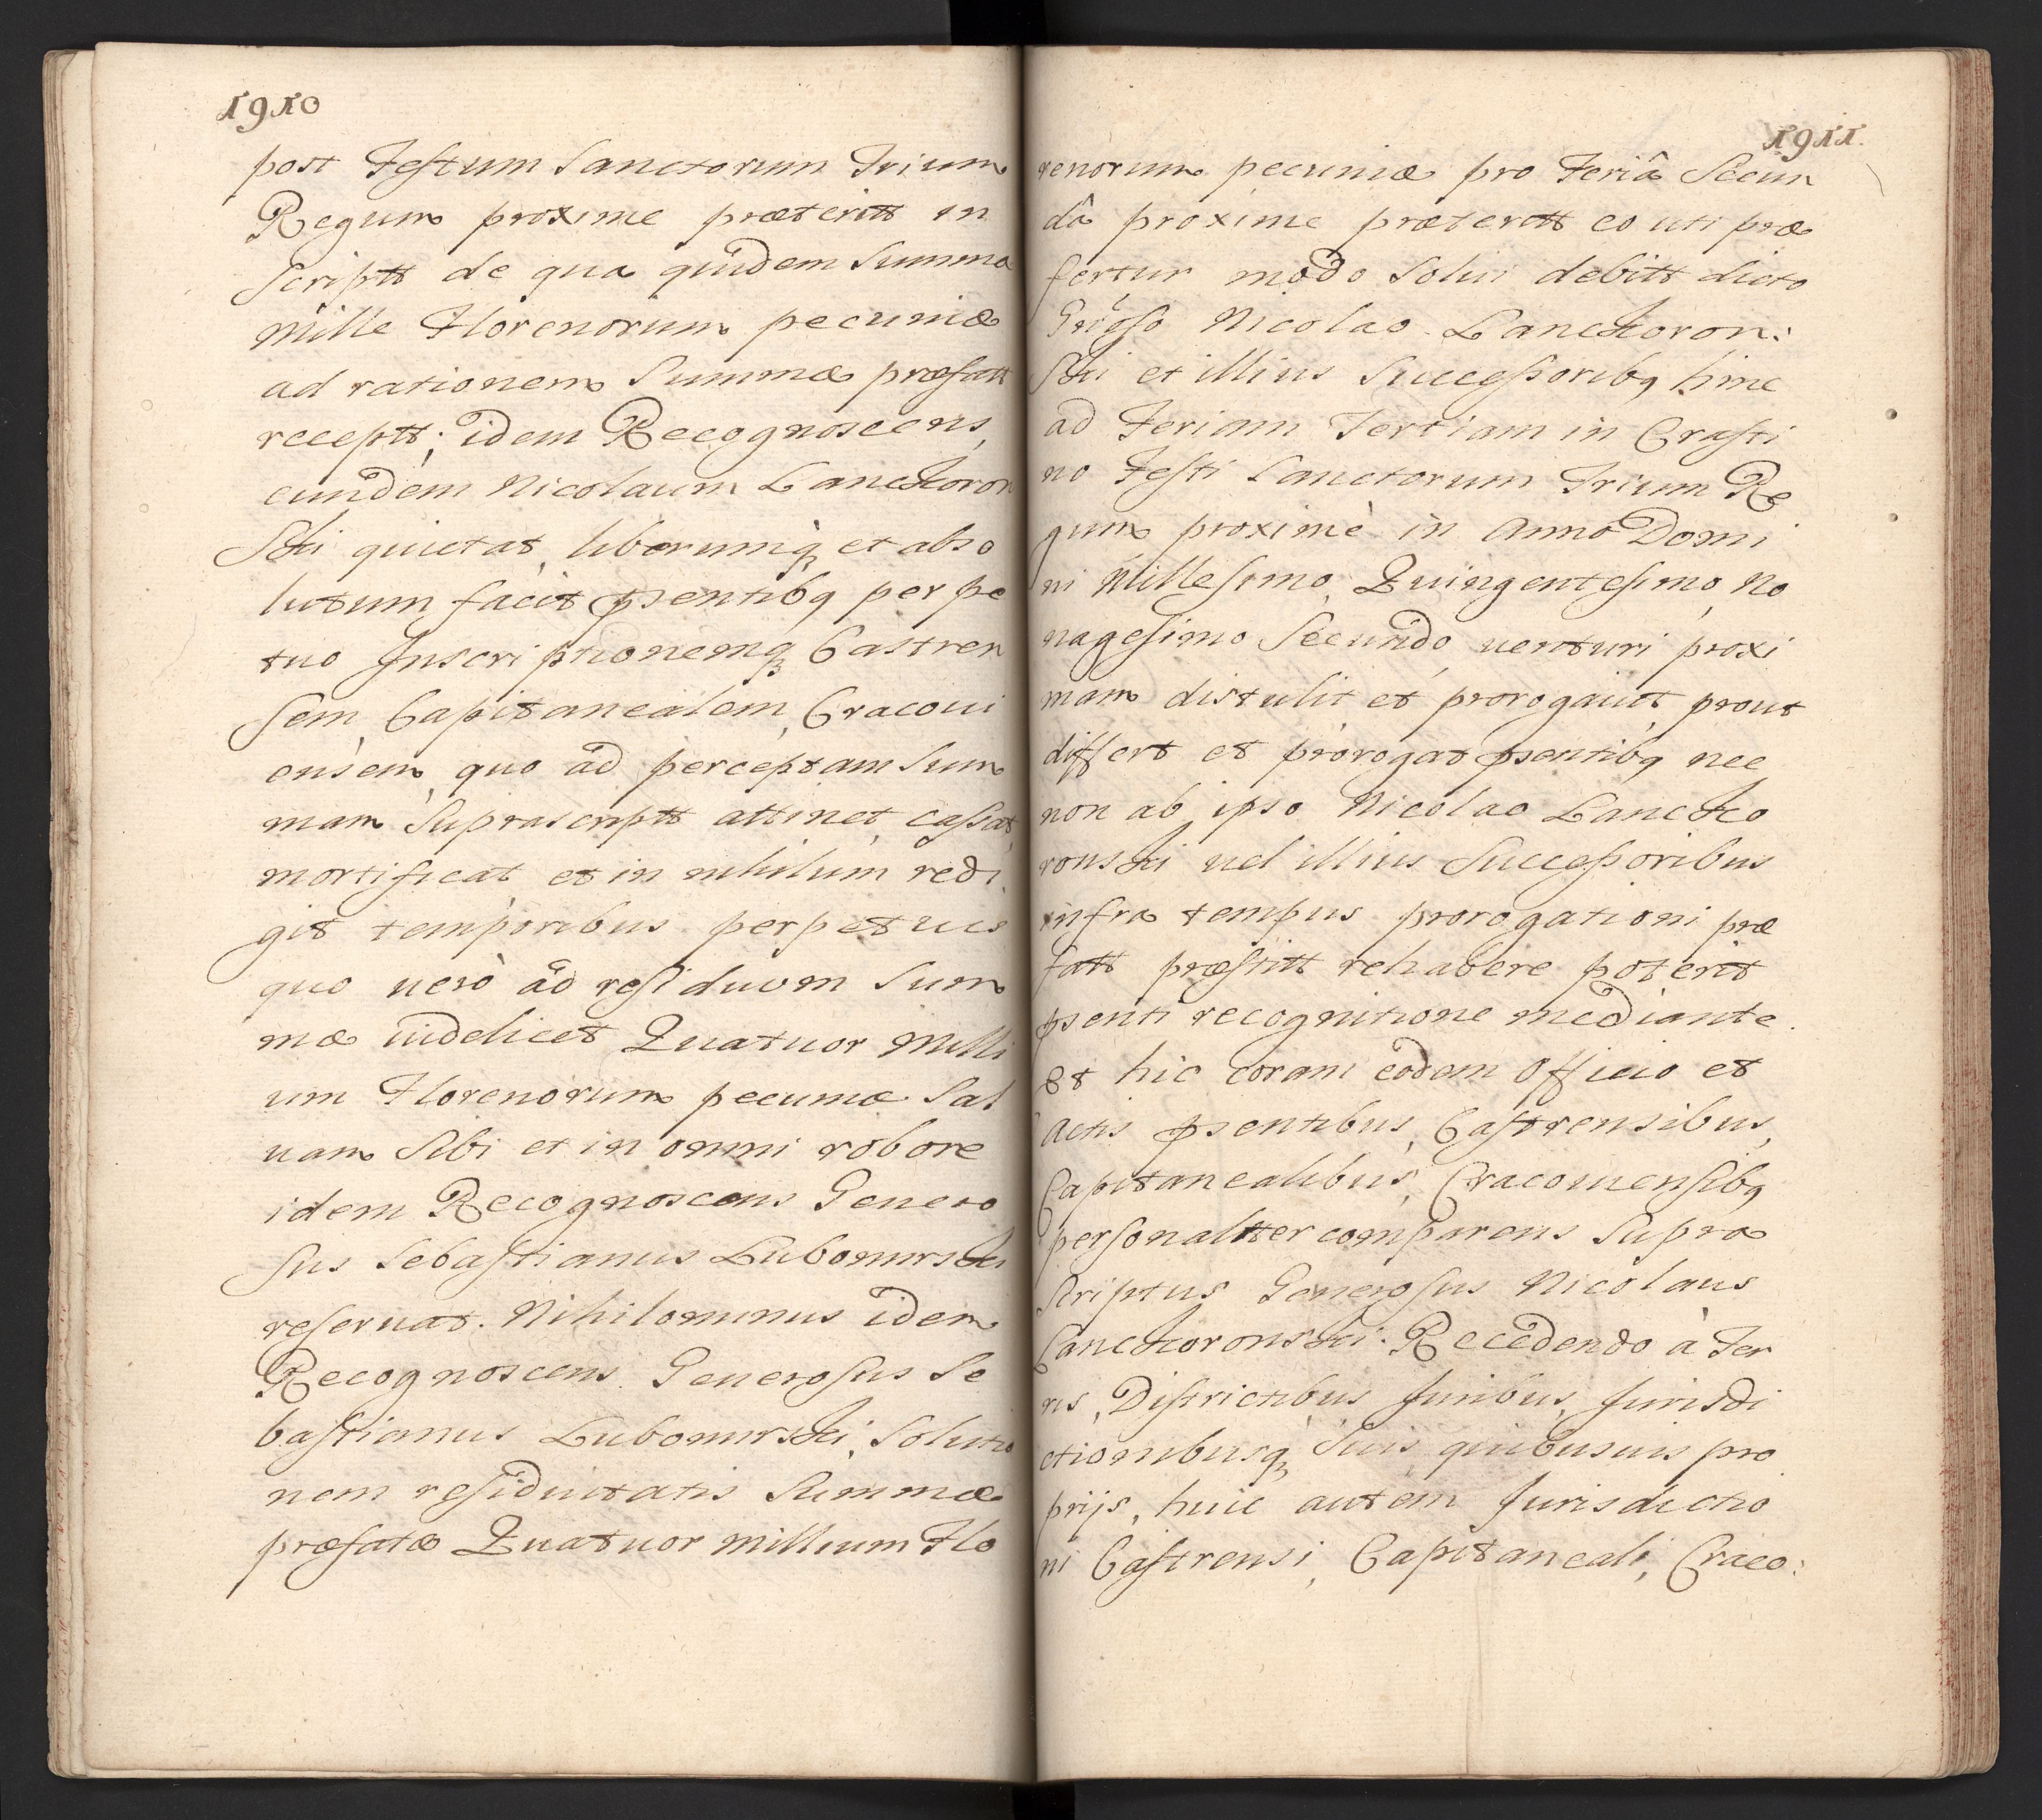 1910
post Festum Sanctorum Trium
Regum proxime præteritt in
Scriptt de qua quidem Summa
Mille Florenorum pecuniæ
ad rationem Summæ præfatt
receptt; idem Recognoscens,
eundem Nicolaum Lanckoron
Ski quietat, liberumq; et abso
lutum facit psentibq perpe
tuo Inscriptionemq; Castren
Sem, Capitanealem, Cracoui
ensem, quo ad perceptam Sum
mam Suprascriptt attinet, cassat,
mortificat et in nihilum redi,
git temporibus perpetuis
quo uerò ad residuum Sum
mæ uidelicet Quatuor Milli
um Florenorum pecuniæ Sal
uam Sibi et in omni robore
idem Recognoscens Genero
Sus Sebastianus Lubomirski
reseruat. Nihilominus idem
Recognoscens Generosus Se
bastianus Lubomirski, Solutio
nem residuitatis Summæ
præfatæ Quatuor Millium Flo
1911.
renorum pecuniæ pro Feriâ Secun
dâ proxime præteritt eo uti præ
fertur modo Solui debitt dicto
Gnoso Nicolao Lanckoron:
Ski et illius Successoribq hinc
ad Feriam Tertiam in Crasti
no Festi Sanctorum Trium Re
gum proximè in Anno Domi
ni Millesimo, Quingentesimo, No
nagesimo Secundo, uenturi proxi
mam distulit et prorogauit, prout
differt et prorogat psentibq nec
non ab ipso Nicolao Lancko
ronski uel illius Successoribus
infra tempus prorogationi præ
fatt præstitt rehabere poterit
psenti recognitione mediante.
Et hic coram eodem Officio et
Actis psentibus, Castrensibus,
Capitanealibus, Cracouiensibq
personaltter comparens Supra
Scriptus Generosus Nicolaus
Lanckoronski. Recedendo à Ter
ris, Districtibus Juribus, Jurisdi
ctionibusq; Suis quibusuis pro
prijs, huic autem Jurisdictio
ni Castrensi, Capitaneali, Craco: